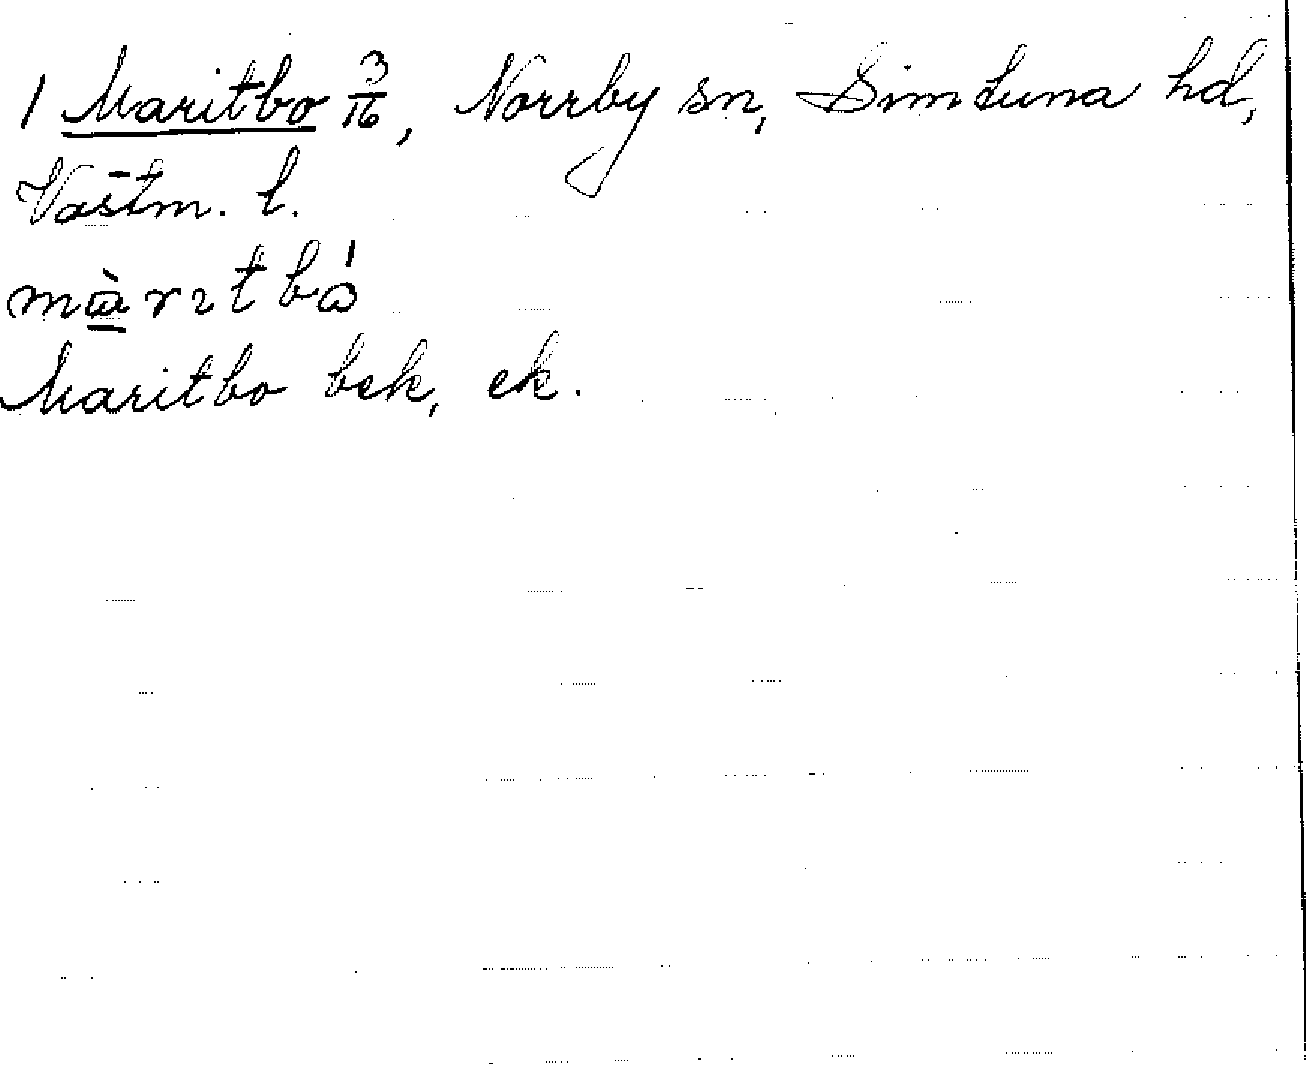 1 Maritbo 3/16, Norrby sn, Simtuna hd,
Västm. l.
màrıtbó
Maritbo bek, ek.